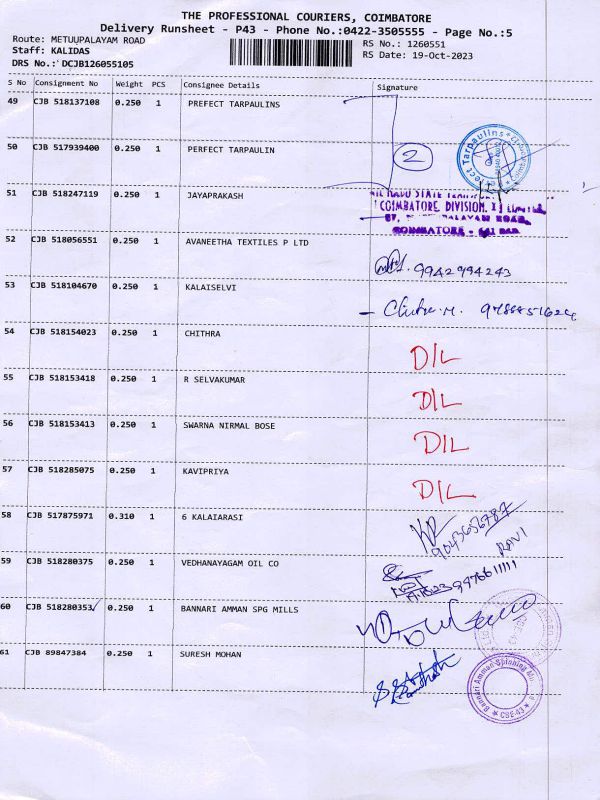 THE PROFESSIONAL COURIERS, COIMBATORE
Delivery Runsheet - P43 - Phone No.:0422-3505555 - Page No.:5
Route: METUUPALAYAM ROAD
Staff: KALIDAS
RS No.: 1260551
RS Date: 19-Oct-2023
DRS No.: DCJB126055105
S No Consignment No Weight PCS Consignee Details Signature
49 CJB 518137108 0.250 1 PREFECT TARPAULINS
50 CJB 517939400 0.250 1 PERFECT TARPAULIN 2
51 CJB 518247119 0.250 1 JAYAPRAKASH
COIMBATORE. DIVISION.
COIMBATORE
52 CJB 518056551 0.250 1 AVANEETHA TEXTILES P LTD 9942994243
53 CJB 518104670 0.250 1 KALAISELVI
54 CJB 518154023 0.250 1 CHITHRA D/L
55 CJB 518153418 0.250 1 R SELVAKUMAR D/L
56 CJB 518153413 0.250 1 SWARNA NIRMAL BOSE D/L
57 CJB 518285075 0.250 1 KAVIPRIYA D/L
58 CJB 517875971 0.310 1 6 KALAIARASI 9043656787
RAVI
59 CJB 518280375 0.250 1 VEDHANAYAGAM OIL CO
60 CJB 518280353 0.250 1 BANNARI AMMAN SPG MILLS
61 CJB 89847384 0.250 1 SURESH MOHAN
Bannari Amman Spinning
CBE-43